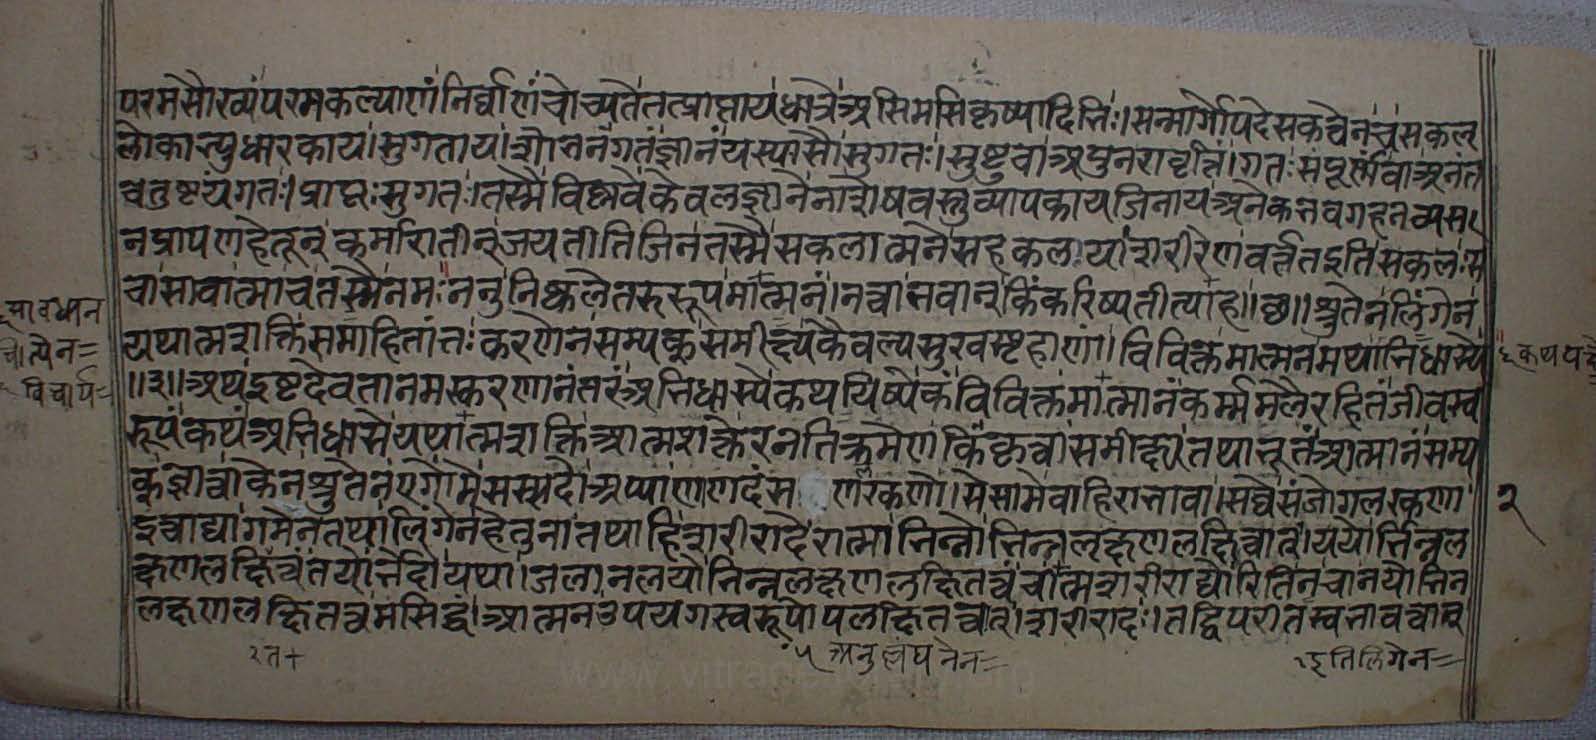 परमसौख्यं परमकल्याणं निर्वाणं चोच्यते तत्प्राप्ताय धात्रे असिमसिकृष्यादिभिः। सन्मार्गोपदेसकत्वेन च सकल
लोकाभ्युधारकाय। सुगताय। शोभनं गतं ज्ञानं यस्यासौ सुगतः। सुष्टु वा अपुनरावृत्तिं। गतः संपूर्णं वा अनंत
चतुष्टयं गतः। प्राप्तः सुगतः। तस्मै विष्णवे केवलज्ञानेनाशेषवस्तुव्यापकाय जिनाय अनेकभवगहनव्यस
नप्रापणहेतून् कर्मारातीन् जयतीति जिनः तस्मै सकलात्मने सह कलया शरीरेण वर्त्तत इति सकलः स
चासावात्मा च तस्मै नमः ननु निष्कलेतररूपमात्मनं। नत्वा भवान् किं करिष्यतीत्याह॥ छ॥ श्रुतेन लिंगेन
यथात्मशक्ति समाहितांतः करणेन सम्यक् समीक्ष्य कैवल्यसुखस्पृहाणां॥ विविक्तमात्मनमथाभिधास्ये
॥३॥ अथ इष्टदेवतानमस्करणानंतरं अभिधास्ये कथयिष्ये कं विविक्तमात्मानं कर्म्ममलैरहितं जीवस्व
रूपं कथं अभिधासे यथात्मशक्ति आत्मशक्तेरनतिक्रमेण किं कृत्वा समीक्ष्य तथाभूतं आत्मानं सम्य
क् ज्ञात्वा केन श्रुतेन एगो मे सस्सदो अप्पा णाणदंस णलरकणो। सेसा मे वाहिरा भावा। सव्वे संजोगलरकणा
इत्याद्यागमेन तथा लिंगेन हेतुना तथा हि शरीरादेरात्मा भिन्नो भिन्नलक्षणलक्षित्वात्। ययोर्भिन्नल
क्षणलक्षित्वं तयोर्भेदो यथा। जलानलयो भिन्नलक्षणलक्षितत्वं चात्मशरीराद्योरिति न चानयोभिन
लक्षणलक्षितत्वमसिद्धं। आत्मन उपयगस्वरूपोपलक्षितत्वात्। शरीरादः। तद्विपरीतस्वभावत्वात्
सावधान
विचार्य=
२
२त+
५ अनुल्लंघनेन=
इति लिंगेन=